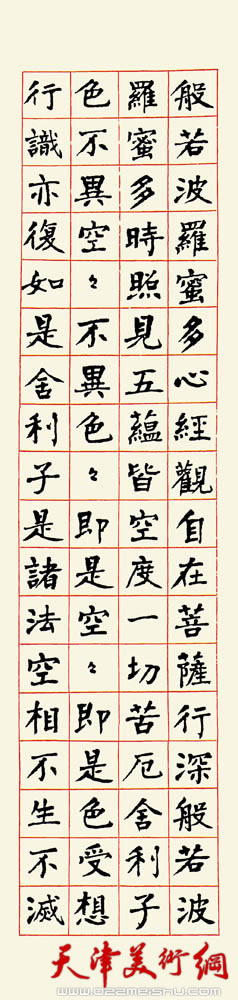 般若波羅蜜多心經觀自在菩薩行深般若波
羅蜜多時照見五蘊皆空度一切苦厄舍利子
色不異空々不異色々即是空々即是色受想
行識亦復如是舍利子是諸法空相不生不滅
天津美術網
www.022meishu.com